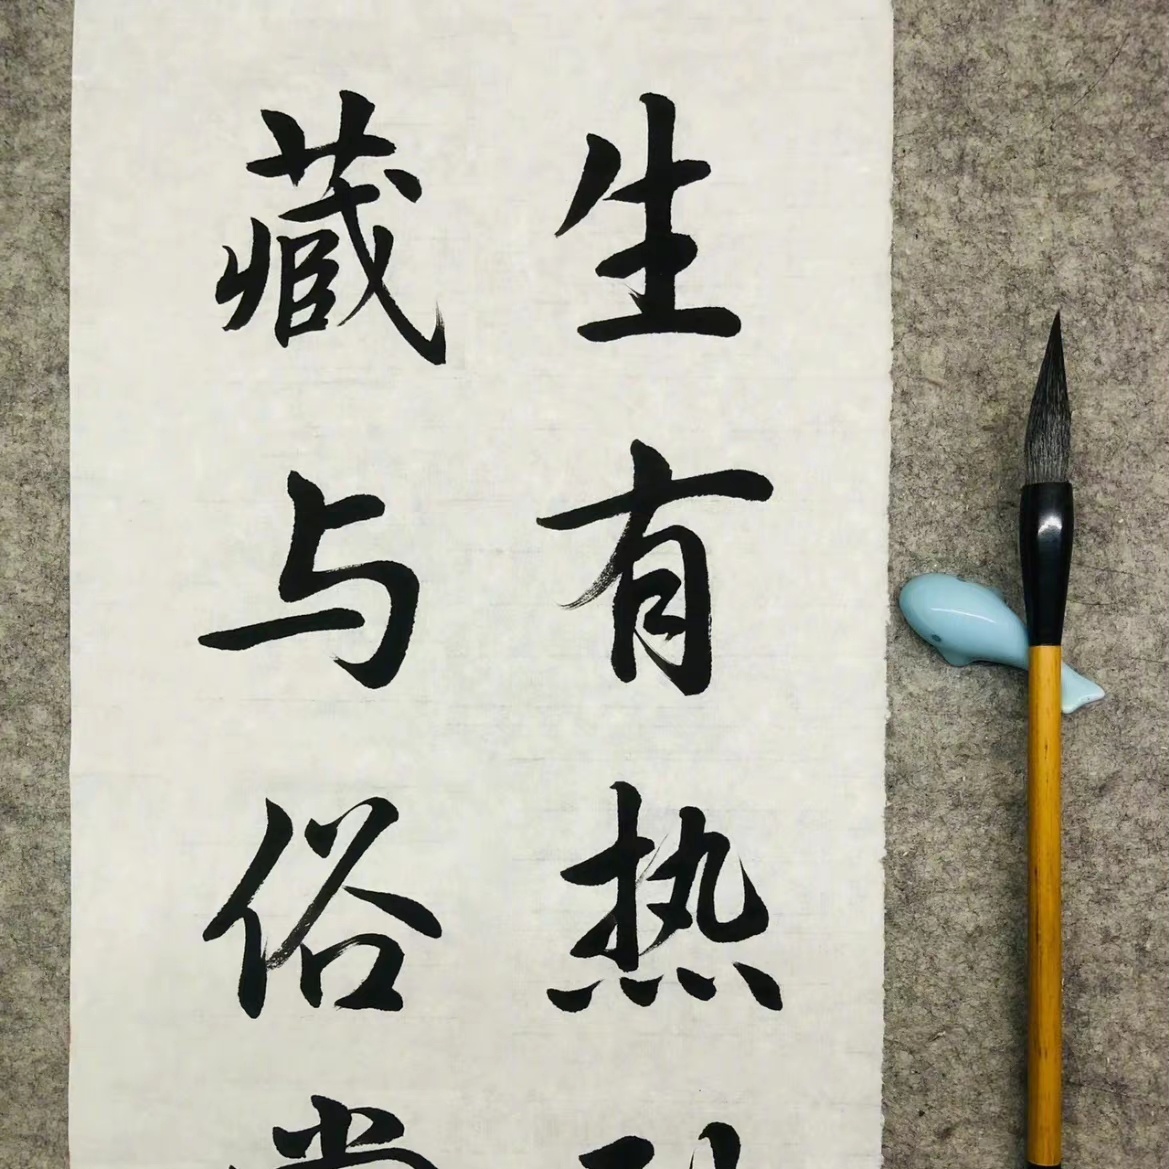 生有热
藏与俗